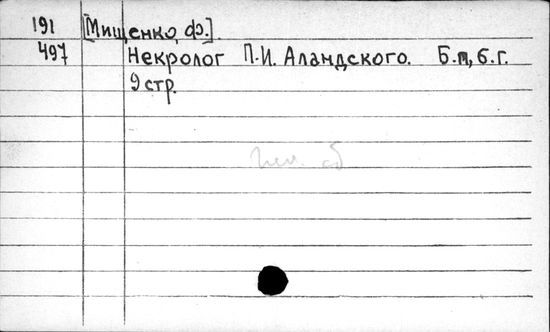 191 [Мищенко, Ф.]
497 Некролог П.И. Аландского. Б.м, б.г.
9 стр.